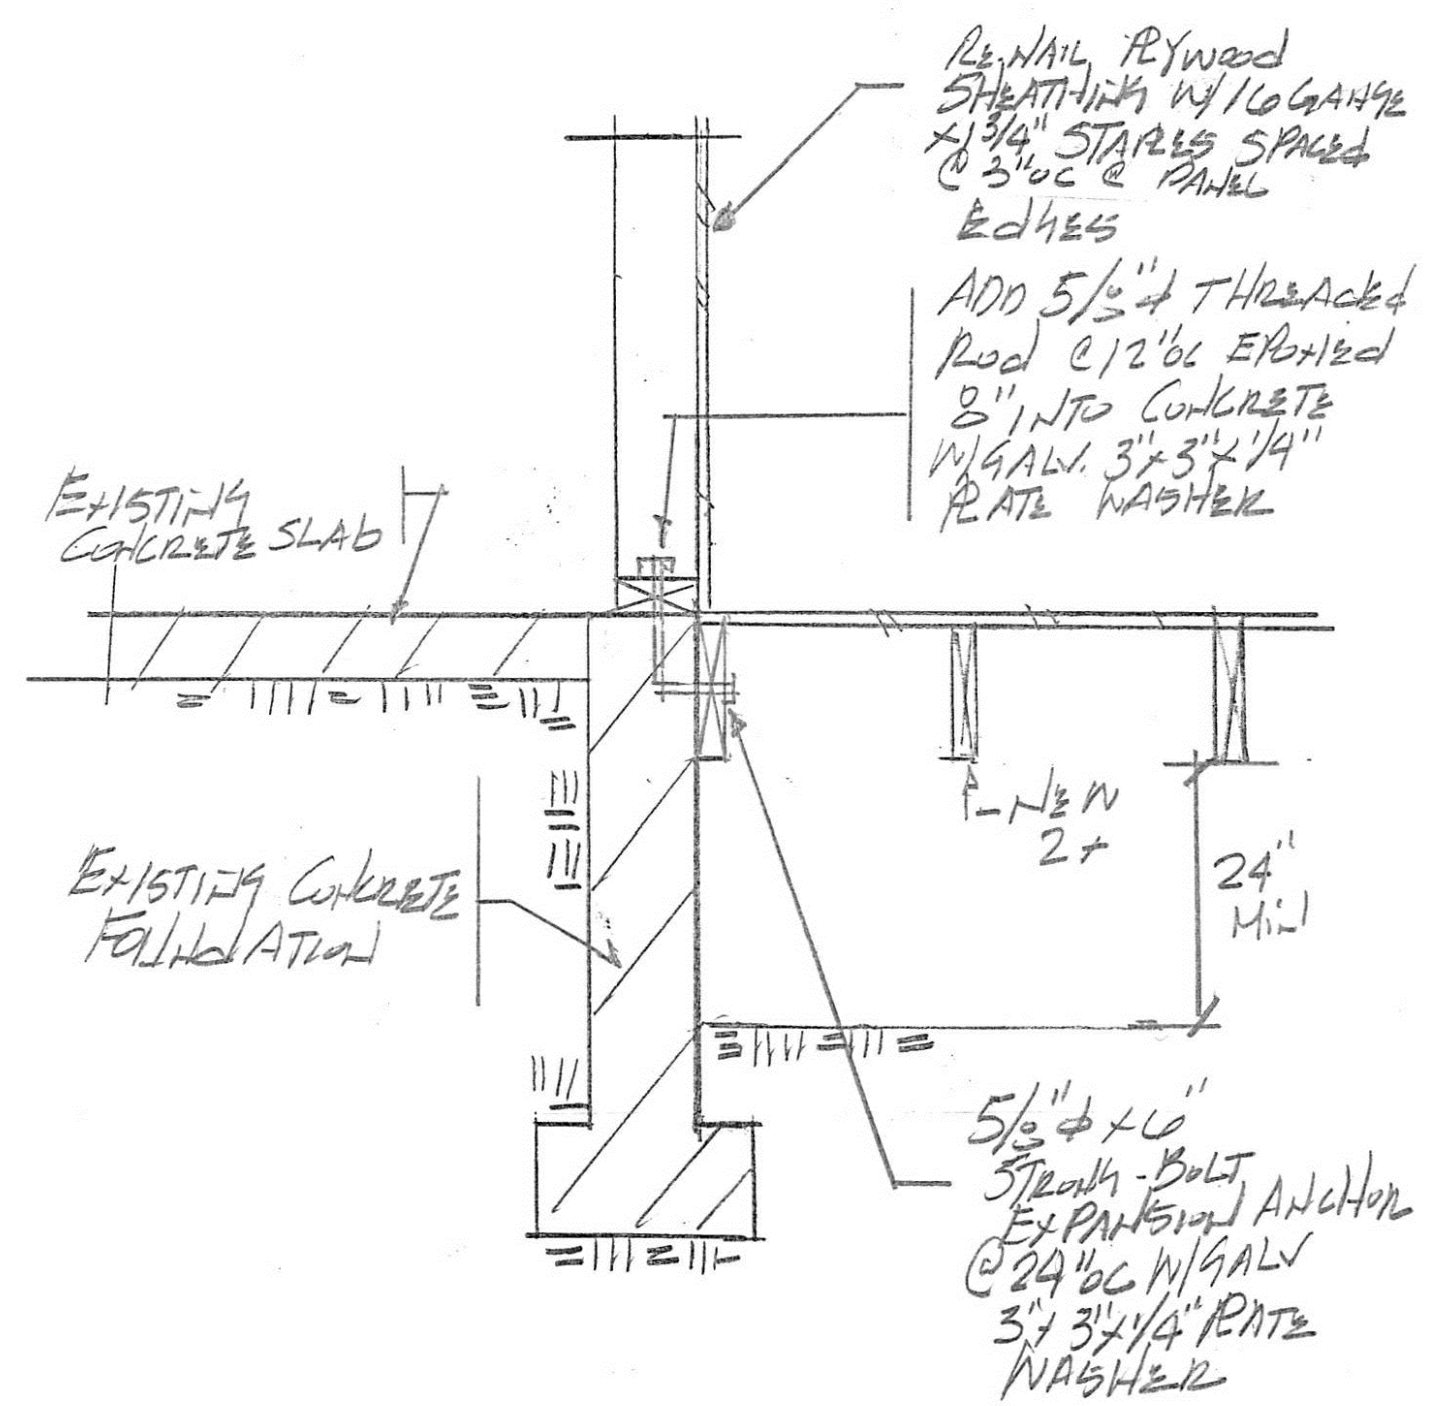 RE-NAIL PLYWOOD
SHEATHING W/ 16 GAUGE
x 1 3/4" STAPLES SPACED
@ 3" OC @ PANEL
EDGES
ADD 5/8" ϕ THREADED
ROD @ 12" OC EPOXIED
8" INTO CONCRETE
W/ GALV. 3" x 3" x 1/4"
PLATE WASHER
EXISTING
CONCRETE SLAB
NEW
2x
24"
MIN
EXISTING CONCRETE
FOUNDATION
5/8" ϕ x 6"
STRONG-BOLT
EXPANSION ANCHOR
@ 24" OC W/ GALV
3" x 3" x 1/4" PLATE
WASHER